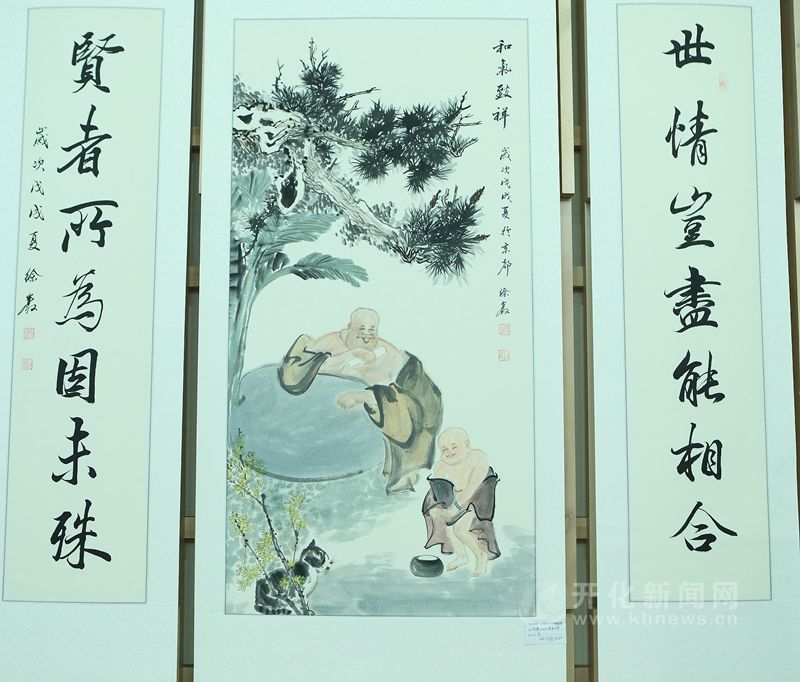 世情豈盡能相合
和氣致祥
歲次戊戌夏於京都 徐巖
賢者所為固未殊
歲次戊戌夏 徐巖
开化新闻网
www.khnews.cn